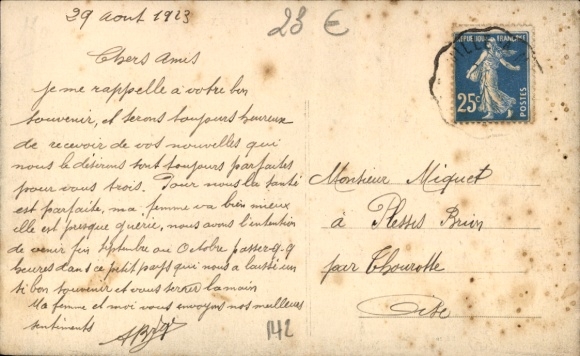 29 Aout 1923
23 €
Chers Amis
je me rappelle à votre bon
souvenir, et serons toujours heureux
de recevoir de vos nouvelles qui
nous le désirons sont toujours parfaites
pour vous trois. Pour nous la santé
est parfaite, ma femme va bien mieux
elle est presque guérie, nous avons l'intention
de venir fin septembre ou Octobre passer q-q
heures dans ce petit pays qui nous a laissé un
si bon souvenir et vous serrer la main
Ma femme et moi vous envoyons nos meilleures
sentiments
142
REPUBLIQUE FRANÇAISE
25c
POSTES
Monsieur Miquet
à Plessis Brion
par Thourotte
Oise